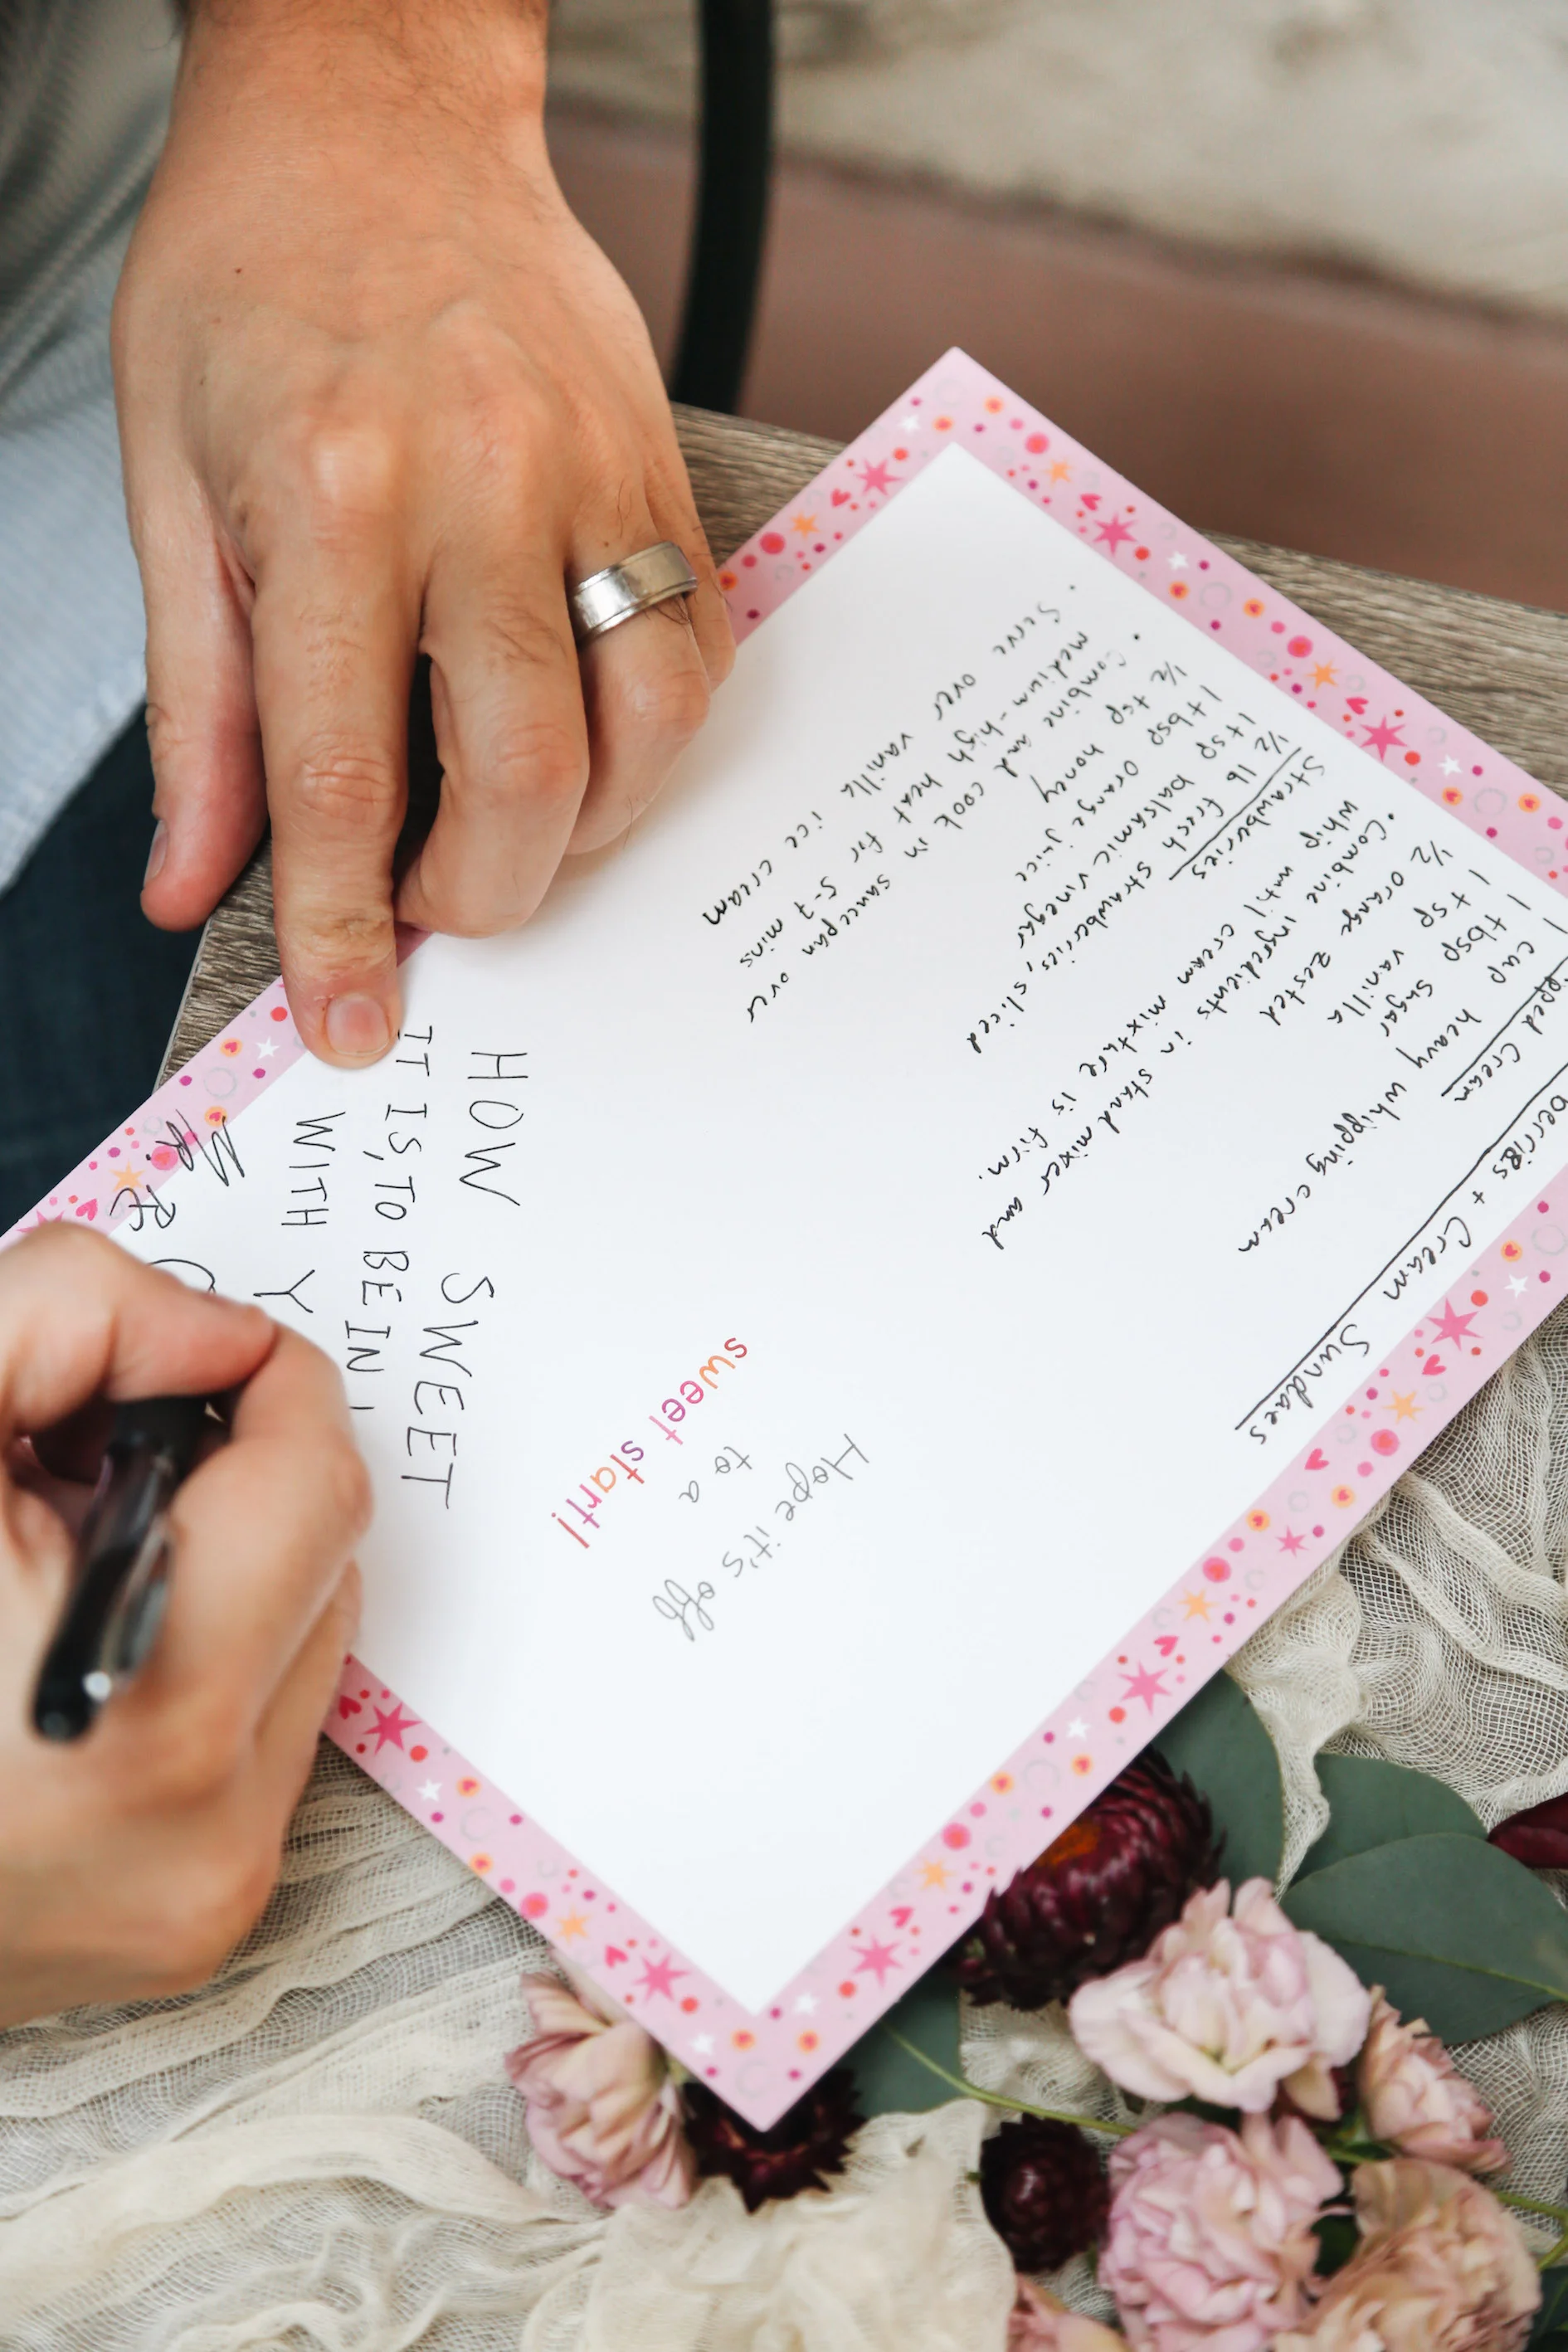 berries + Cream Sundaes
pped Cream
1 cup heavy whipping cream
1 tbsp sugar
1 tsp vanilla
1/2 orange zested
• Combine ingredients in stand mixer and
whip until cream mixture is firm.
Strawberries
1/2 lb fresh strawberries, sliced
1 tsp balsamic vinegar
1 tbsp orange juice
1/2 tsp honey
• Combine and cook in saucepan over
medium-high heat for 5-7 mins
• Serve over vanilla ice cream
Hope it's off
to a
sweet start!
HOW SWEET
IT IS, TO BE IN
WITH Y